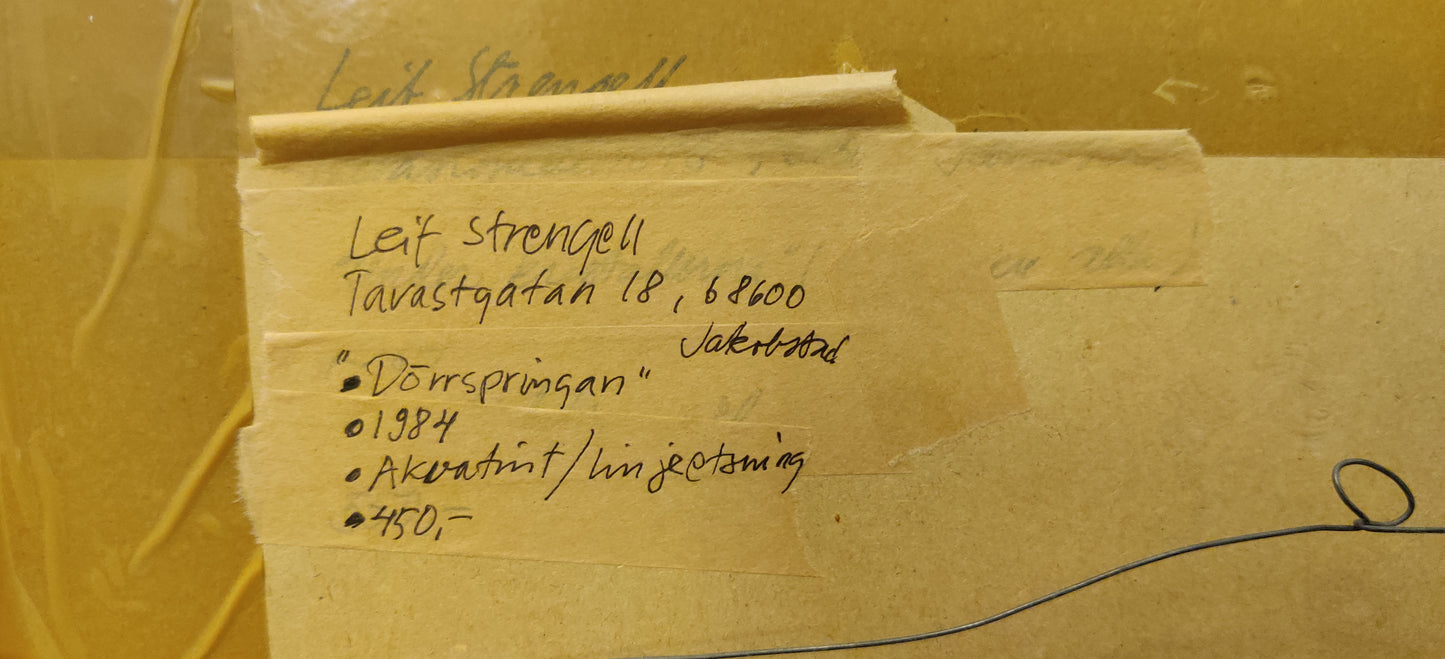 Leif Strengell
Leif Strengell
Tavastgatan 18, 68600
Jakobstad
"•Dörrspringan"
•1984
•Akvatint/linjeetsning
•450,-